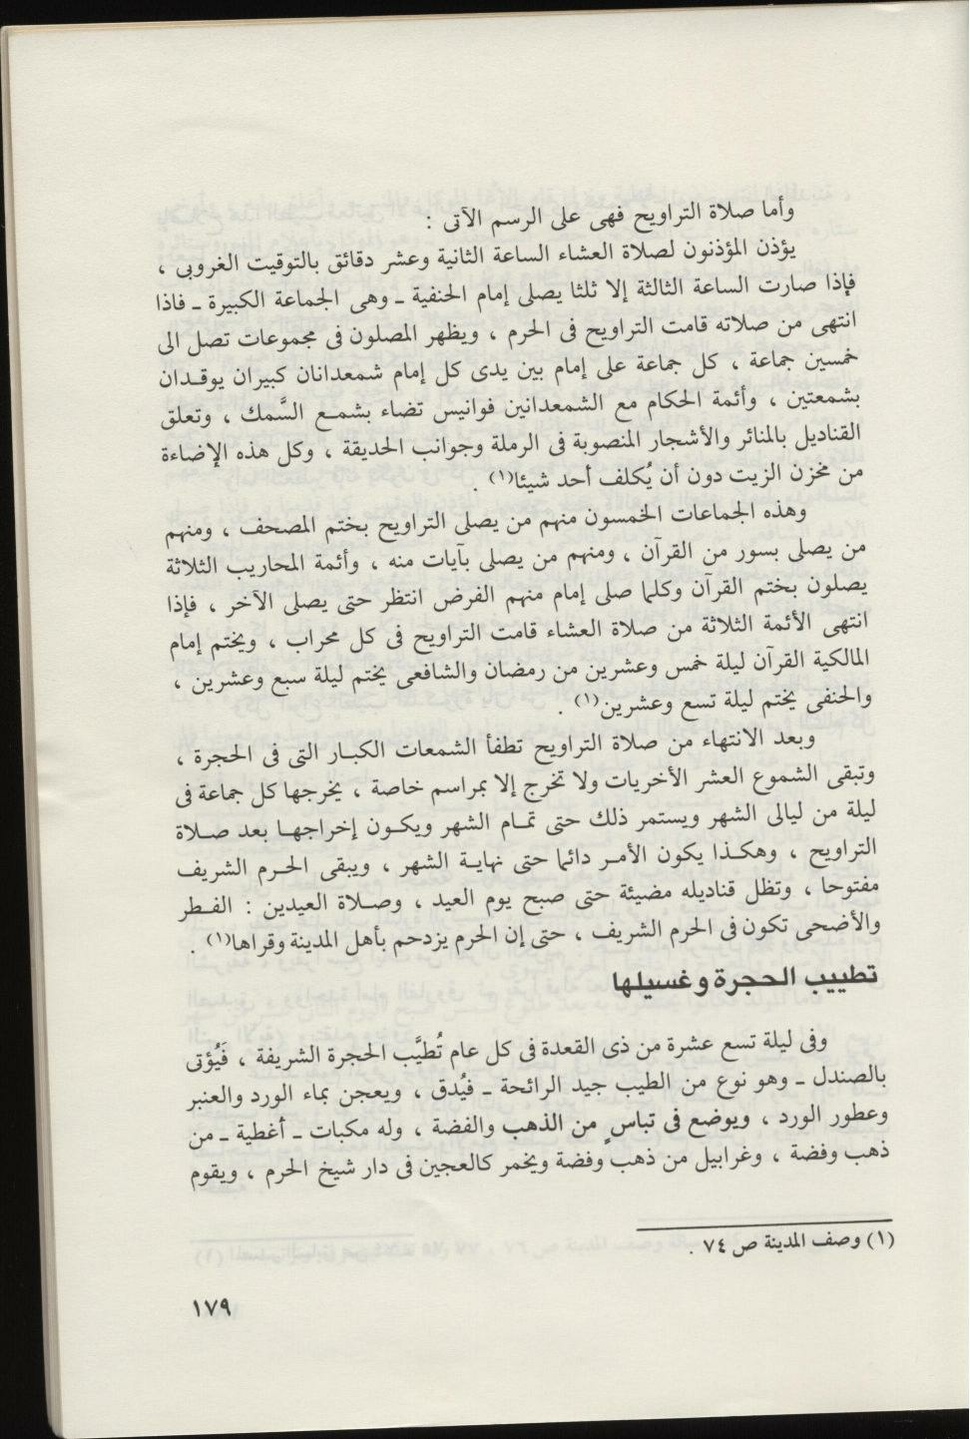 وأما صلاة التراويح فهى على الرسم الآتى :
يؤذن المؤذنون لصلاة العشاء الساعة الثانية وعشر دقائق بالتوقيت الغروبى ،
فإذا صارت الساعة الثالثة إلا ثلثا يصلى إمام الحنفية ـ وهى الجماعة الكبيرة ـ فاذا
انتهى من صلاته قامت التراويح فى الحرم ، ويظهر المصلون فى مجموعات تصل الى
خمسين جماعة ، كل جماعة على إمام بين يدى كل إمام شمعدانان كبيران يوقدان
بشمعتين ، وأئمة الحكام مع الشمعدانين فوانيس تضاء بشمع السَّمك ، وتعلق
القناديل بالمنائر والأشجار المنصوبة فى الرملة وجوانب الحديقة ، وكل هذه الإضاءة
من مخزن الزيت دون أن يُكلف أحد شيئا(١) .
وهذه الجماعات الخمسون منهم من يصلى التراويح بختم المصحف ، ومنهم
من يصلى بسور من القرآن ، ومنهم من يصلى بآيات منه ، وأئمة المحاريب الثلاثة
يصلون بختم القرآن وكلما صلى إمام منهم الفرض انتظر حتى يصلى الآخر ، فإذا
انتهى الأئمة الثلاثة من صلاة العشاء قامت التراويح فى كل محراب ، ويختم إمام
المالكية القرآن ليلة خمس وعشرين من رمضان والشافعى يختم ليلة سبع وعشرين ،
والحنفى يختم ليلة تسع وعشرين(١) .
وبعد الانتهاء من صلاة التراويح تطفأ الشمعات الكبار التى فى الحجرة ،
وتبقى الشموع العشر الأخريات ولا تخرج إلا بمراسم خاصة ، يخرجها كل جماعة فى
ليلة من ليالى الشهر ويستمر ذلك حتى تمام الشهر ويكون إخراجها بعد صلاة
التراويح ، وهكذا يكون الأمر دائما حتى نهاية الشهر ، ويبقى الحرم الشريف
مفتوحا ، وتظل قناديله مضيئة حتى صبح يوم العيد ، وصلاة العيدين : الفطر
والأضحى تكون فى الحرم الشريف ، حتى إن الحرم يزدحم بأهل المدينة وقراها(١) .
تطييب الحجرة وغسيلها
وفى ليلة تسع عشرة من ذى القعدة فى كل عام تُطيَّب الحجرة الشريفة ، فَيُؤتى
بالصندل ـ وهو نوع من الطيب جيد الرائحة ـ فيُدق ، ويعجن بماء الورد والعنبر
وعطور الورد ، ويوضع فى تباسٍ من الذهب والفضة ، وله مكبات ـ أغطية ـ من
ذهب وفضة ، وغرابيل من ذهب وفضة ويخمر كالعجين فى دار شيخ الحرم ، ويقوم
(١) وصف المدينة ص ٧٤ .
١٧٩